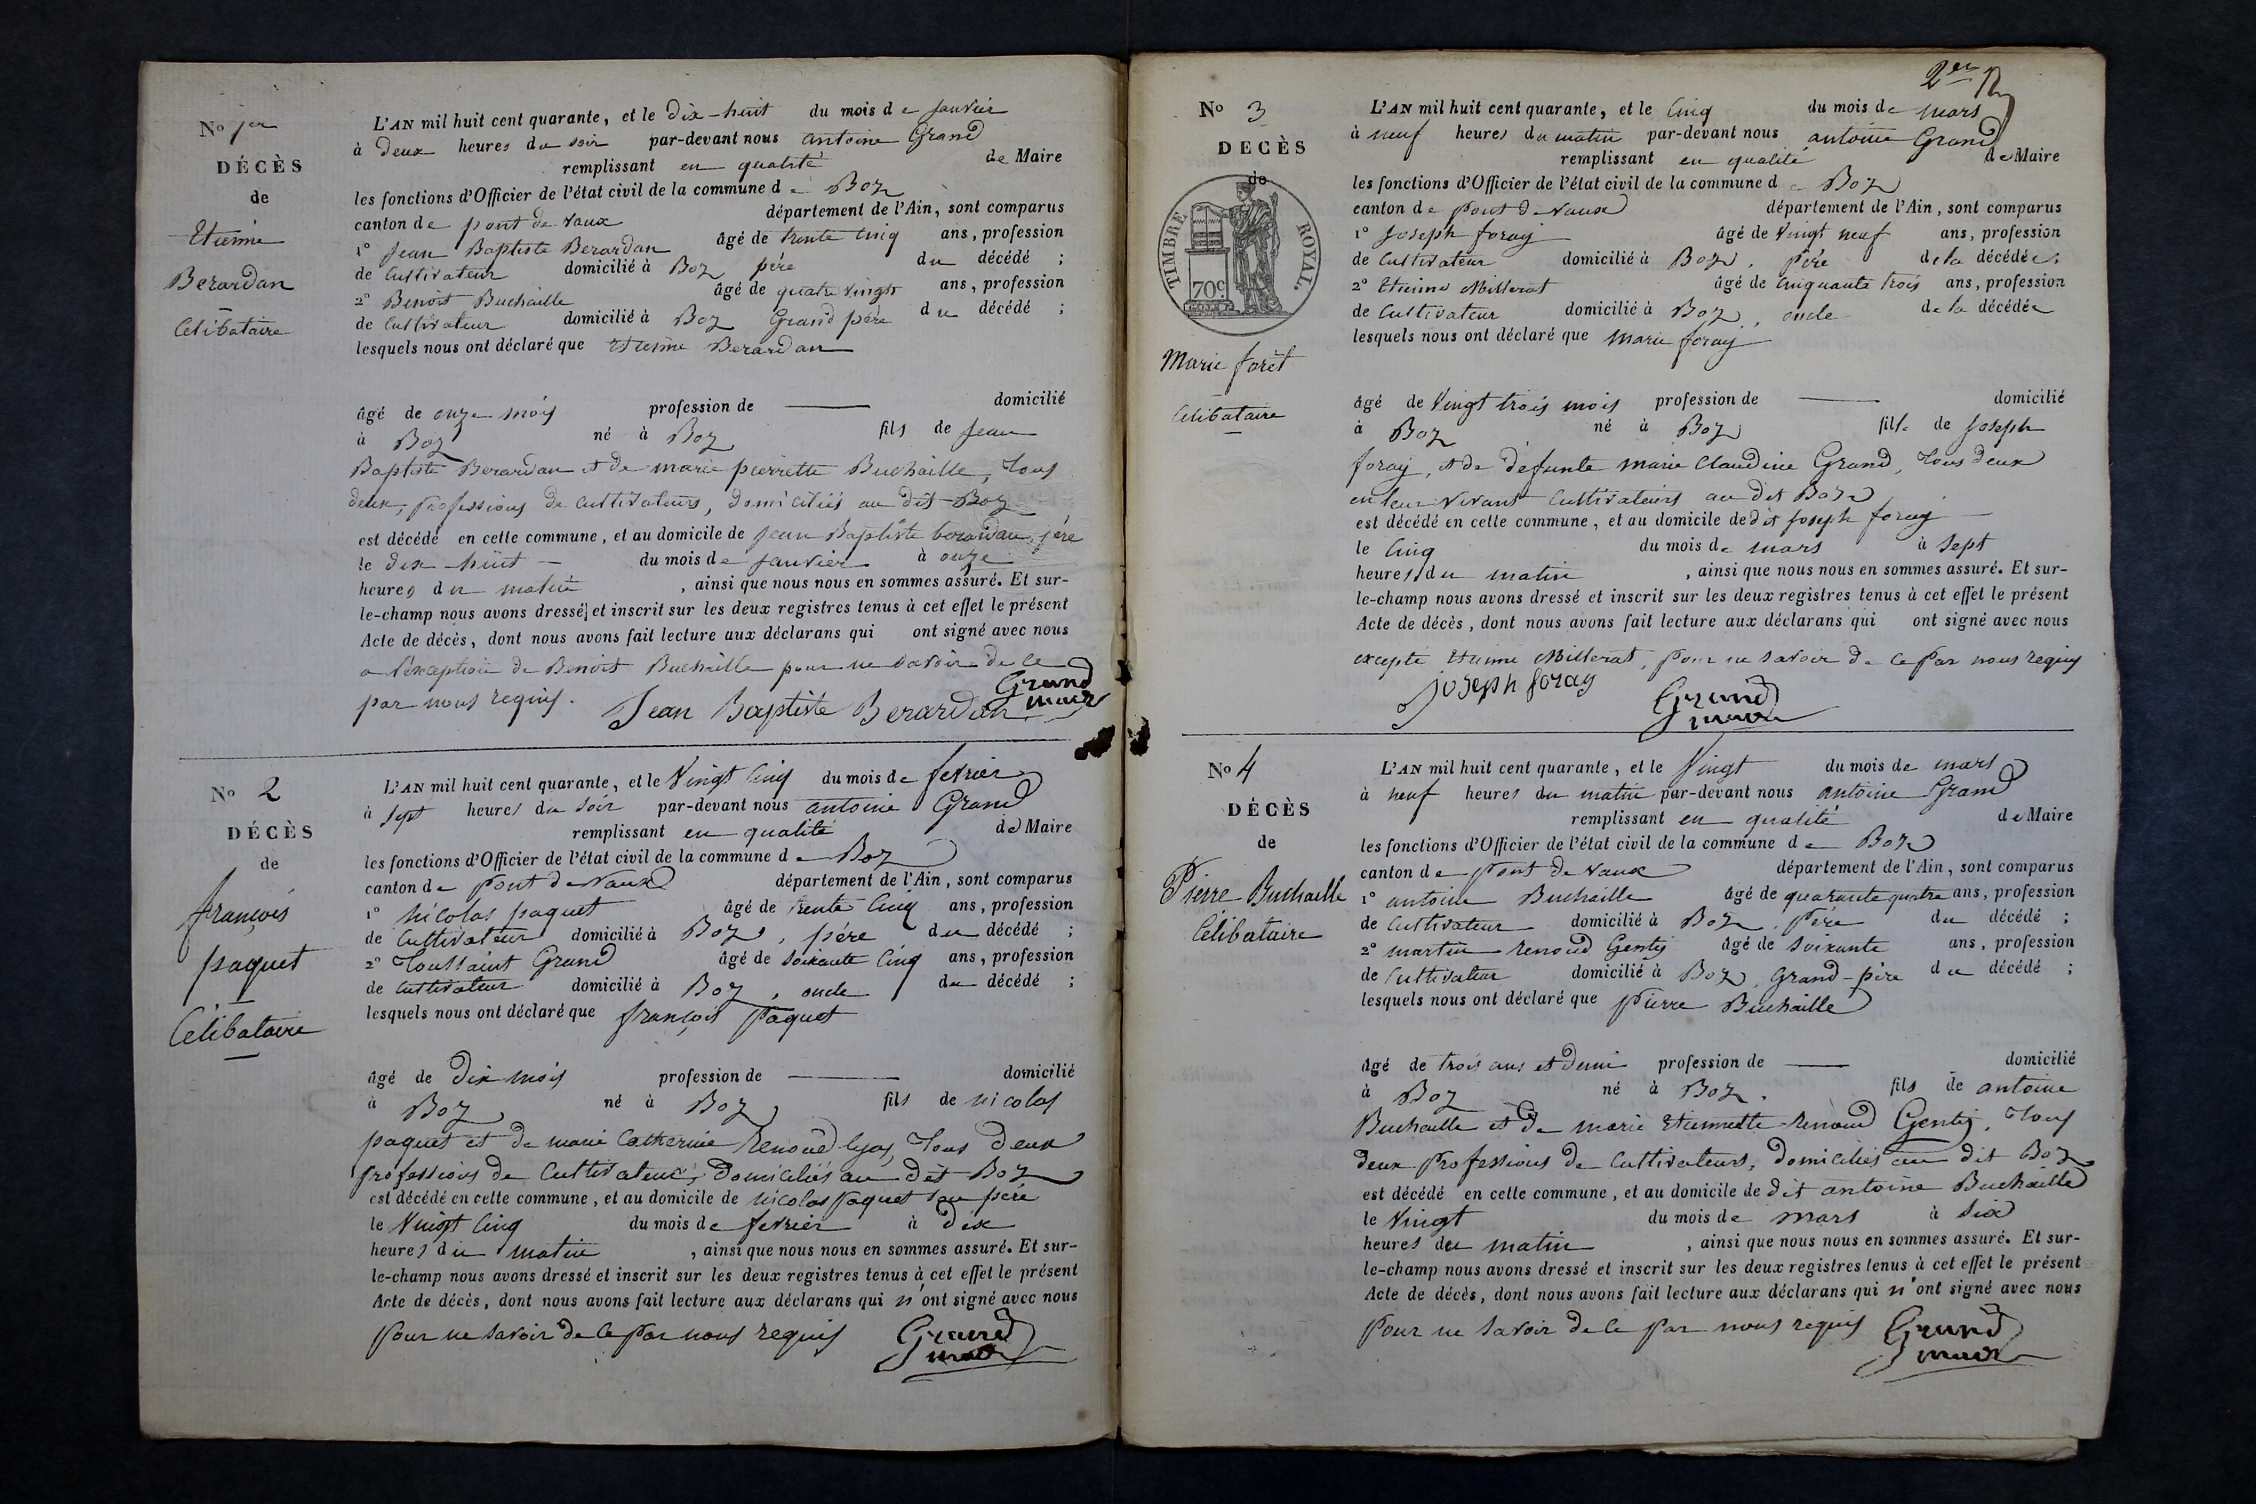 No 1er
DÉCÈS
de
Etienne
Berardan
Célibataire
L'AN mil huit cent quarante, et le dix-huit du mois de janvier
à deux heures du soir par-devant nous antoine Grand
remplissant en qualité de Maire
les fonctions d'Officier de l'état civil de la commune de Boz
canton de pont de vaux département de l'Ain, sont comparus
1° Jean Baptiste Berardan âgé de trente cinq ans, profession
de cultivateur domicilié à Boz père du décédé ;
2° Benoit Buchaille âgé de quatre vingts ans, profession
de cultivateur domicilié à Boz Grand père du décédé ;
lesquels nous ont déclaré que Etienne Berardan
âgé de onze mois profession de — domicilié
à Boz né à Boz fils de Jean
Baptiste Berardan et de marie pierrette Buchaille, tous
deux, professions de cultivateurs, domiciliés au dit Boz
est décédé en cette commune, et au domicile de Jean Baptiste berardan, père
le dix-huit du mois de janvier à onze
heures du matin, ainsi que nous nous en sommes assuré. Et sur-
le-champ nous avons dressé et inscrit sur les deux registres tenus à cet effet le présent
Acte de décès, dont nous avons fait lecture aux déclarans qui ont signé avec nous
a l'exception de Benoit Buchaille pour ne savoir de ce
par nous requis. Jean Baptiste Berardan Grand maire
No 2
DÉCÈS
de
françois
paquet
Célibataire
L'AN mil huit cent quarante, et le vingt cinq du mois de fevrier
à sept heures du soir par-devant nous antoine Grand
remplissant en qualité de Maire
les fonctions d'Officier de l'état civil de la commune de Boz
canton de pont de vaux département de l'Ain, sont comparus
1° nicolas paquet âgé de trente cinq ans, profession
de cultivateur domicilié à Boz, père du décédé ;
2° Toussaint Grand âgé de soixante cinq ans, profession
de cultivateur domicilié à Boz, oncle du décédé ;
lesquels nous ont déclaré que françois paquet
âgé de dix mois profession de — domicilié
à Boz né à Boz fils de nicolas
paquet et de marie Catherine Renoud lyas, tous deux
professions de cultivateurs, domiciliés au dit Boz
est décédé en cette commune, et au domicile de nicolas paquet son père
le vingt cinq du mois de fevrier à dix
heures du matin, ainsi que nous nous en sommes assuré. Et sur-
le-champ nous avons dressé et inscrit sur les deux registres tenus à cet effet le présent
Acte de décès, dont nous avons fait lecture aux déclarans qui n'ont signé avec nous
pour ne savoir de ce par nous requis Grand maire
2er
No 3
DECÈS
de
TIMBRE ROYAL.
70c
Marie forêt
Celibataire
L'AN mil huit cent quarante, et le cinq du mois de mars
à neuf heures du matin par-devant nous antoine Grand
remplissant en qualité de Maire
les fonctions d'Officier de l'état civil de la commune de Boz
canton de pont de vaux département de l'Ain, sont comparus
1° Joseph foray âgé de vingt neuf ans, profession
de cultivateur domicilié à Boz, père de la décédée;
2° Etienne Millerat âgé de cinquante trois ans, profession
de cultivateur domicilié à Boz, oncle de la décédée
lesquels nous ont déclaré que marie foray
âgé de vingt trois mois profession de — domicilié
à Boz né à Boz fille de Joseph
foray, et de défunte marie Claudine Grand, tous deux
en leur vivant cultivateurs au dit Boz
est décédé en cette commune, et au domicile de dit joseph foray
le cinq du mois de mars à sept
heures du matin, ainsi que nous nous en sommes assuré. Et sur-
le-champ nous avons dressé et inscrit sur les deux registres tenus à cet effet le présent
Acte de décès, dont nous avons fait lecture aux déclarans qui ont signé avec nous
excepté Etienne Millerat, pour ne savoir de ce par nous requis
joseph foray Grand maire
No 4
DÉCÈS
de
Pierre Buchaille
Célibataire
L'AN mil huit cent quarante, et le vingt du mois de mars
à neuf heures du matin par-devant nous antoine Grand
remplissant en qualité de Maire
les fonctions d'Officier de l'état civil de la commune de Boz
canton de pont de vaux département de l'Ain, sont comparus
1° antoine Buchaille âgé de quarante quatre ans, profession
de cultivateur domicilié à Boz, père du décédé ;
2° martin renoud Gentij âgé de soixante ans, profession
de cultivateur domicilié à Boz, Grand-père du décédé ;
lesquels nous ont déclaré que pierre Buchaille
âgé de trois ans et demi profession de — domicilié
à Boz né à Boz. fils de antoine
Buchaille et de marie Etiennette renoud Gentij, tous
deux professions de cultivateurs, domiciliés au dit Boz
est décédé en cette commune, et au domicile de dit antoine Buchaille
le vingt du mois de mars à six
heures du matin, ainsi que nous nous en sommes assuré. Et sur-
le-champ nous avons dressé et inscrit sur les deux registres tenus à cet effet le présent
Acte de décès, dont nous avons fait lecture aux déclarans qui n'ont signé avec nous
pour ne savoir de ce par nous requis Grand maire